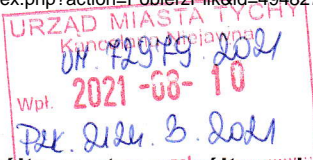 ex.php?action=PobierzPlik&id=49482
URZĄD MIASTA TYCHY
Kancelaria Niejawna
UM. 72979. 2021
Wpł. 2021 -08- 10
PZK. 2124. 3. 2021